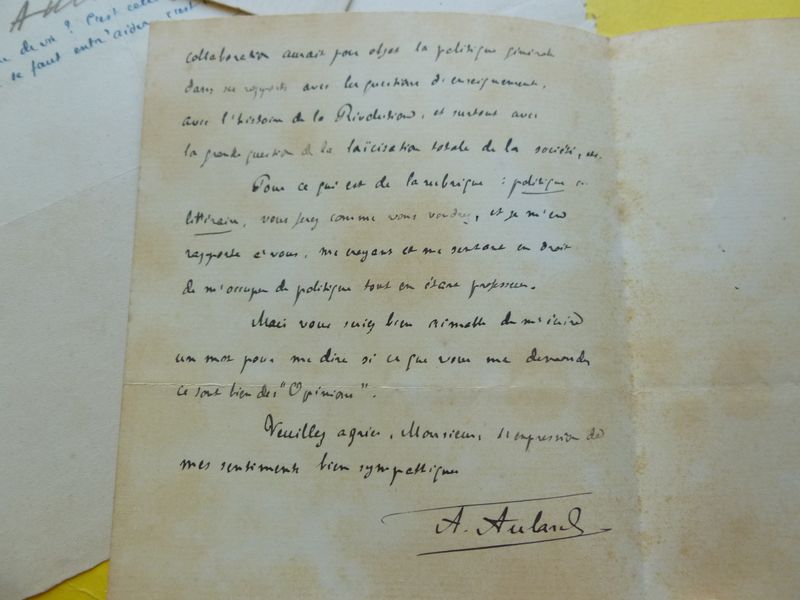 de vie ? C'est cela
se faut entr'aider, c'est
collaboration aurait pour objet la politique générale
dans ses rapports avec les questions d'enseignement,
avec l'histoire de la Révolution, et surtout avec
la grande question de la laïcisation totale de la société, etc.
Pour ce qui est de la rubrique : politique ou
littéraire, vous ferez comme vous voudrez, et je m'en
rapporte à vous, me croyant et me sentant en droit
de m'occuper de politique tout en étant professeur.
Mais vous seriez bien aimable de m'écrire
un mot pour me dire si ce que vous me demandez
ce sont bien des "Opinions".
Veuillez agréer, Monsieur, l'expression de
mes sentiments bien sympathiques
A. Aulard